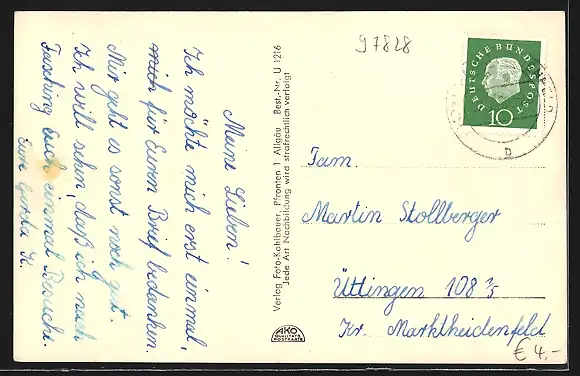 Meine Lieben!
Ich möchte mich erst einmal,
mich für Euren Brief bedanken.
Mir geht es sonst noch gut.
Ich will sehn, daß ich nach
Fasching Euch einmal Besuche.
Eure Gerta K.
Verlag Foto-Kohlbauer, Pfronten 1 Allgäu Best.-Nr. U 1216
Jede Art Nachbildung wird strafrechtlich verfolgt
AKO
QUALITÄTS
POSTKARTE
97828
DEUTSCHE BUNDESPOST
10
b
Fam.
Martin Stollberger
Üttingen 108 ⅓
Kr. Marktheidenfeld
€ 4,-